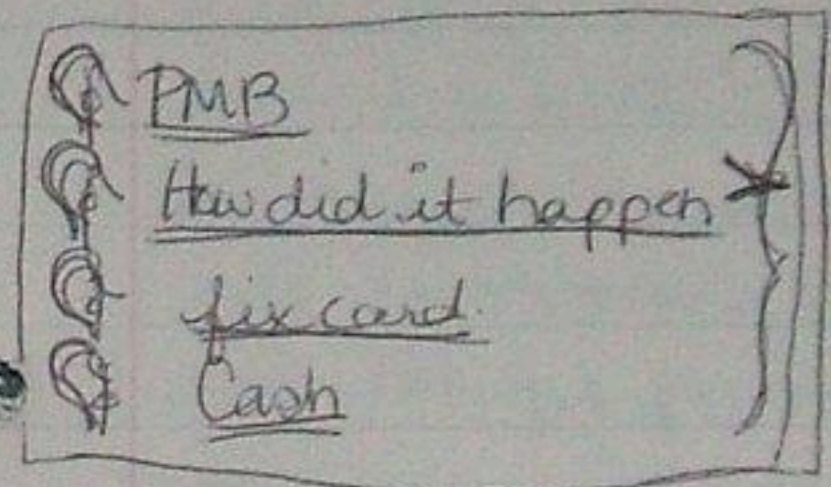 PMB
How did it happen
fix card.
Cash